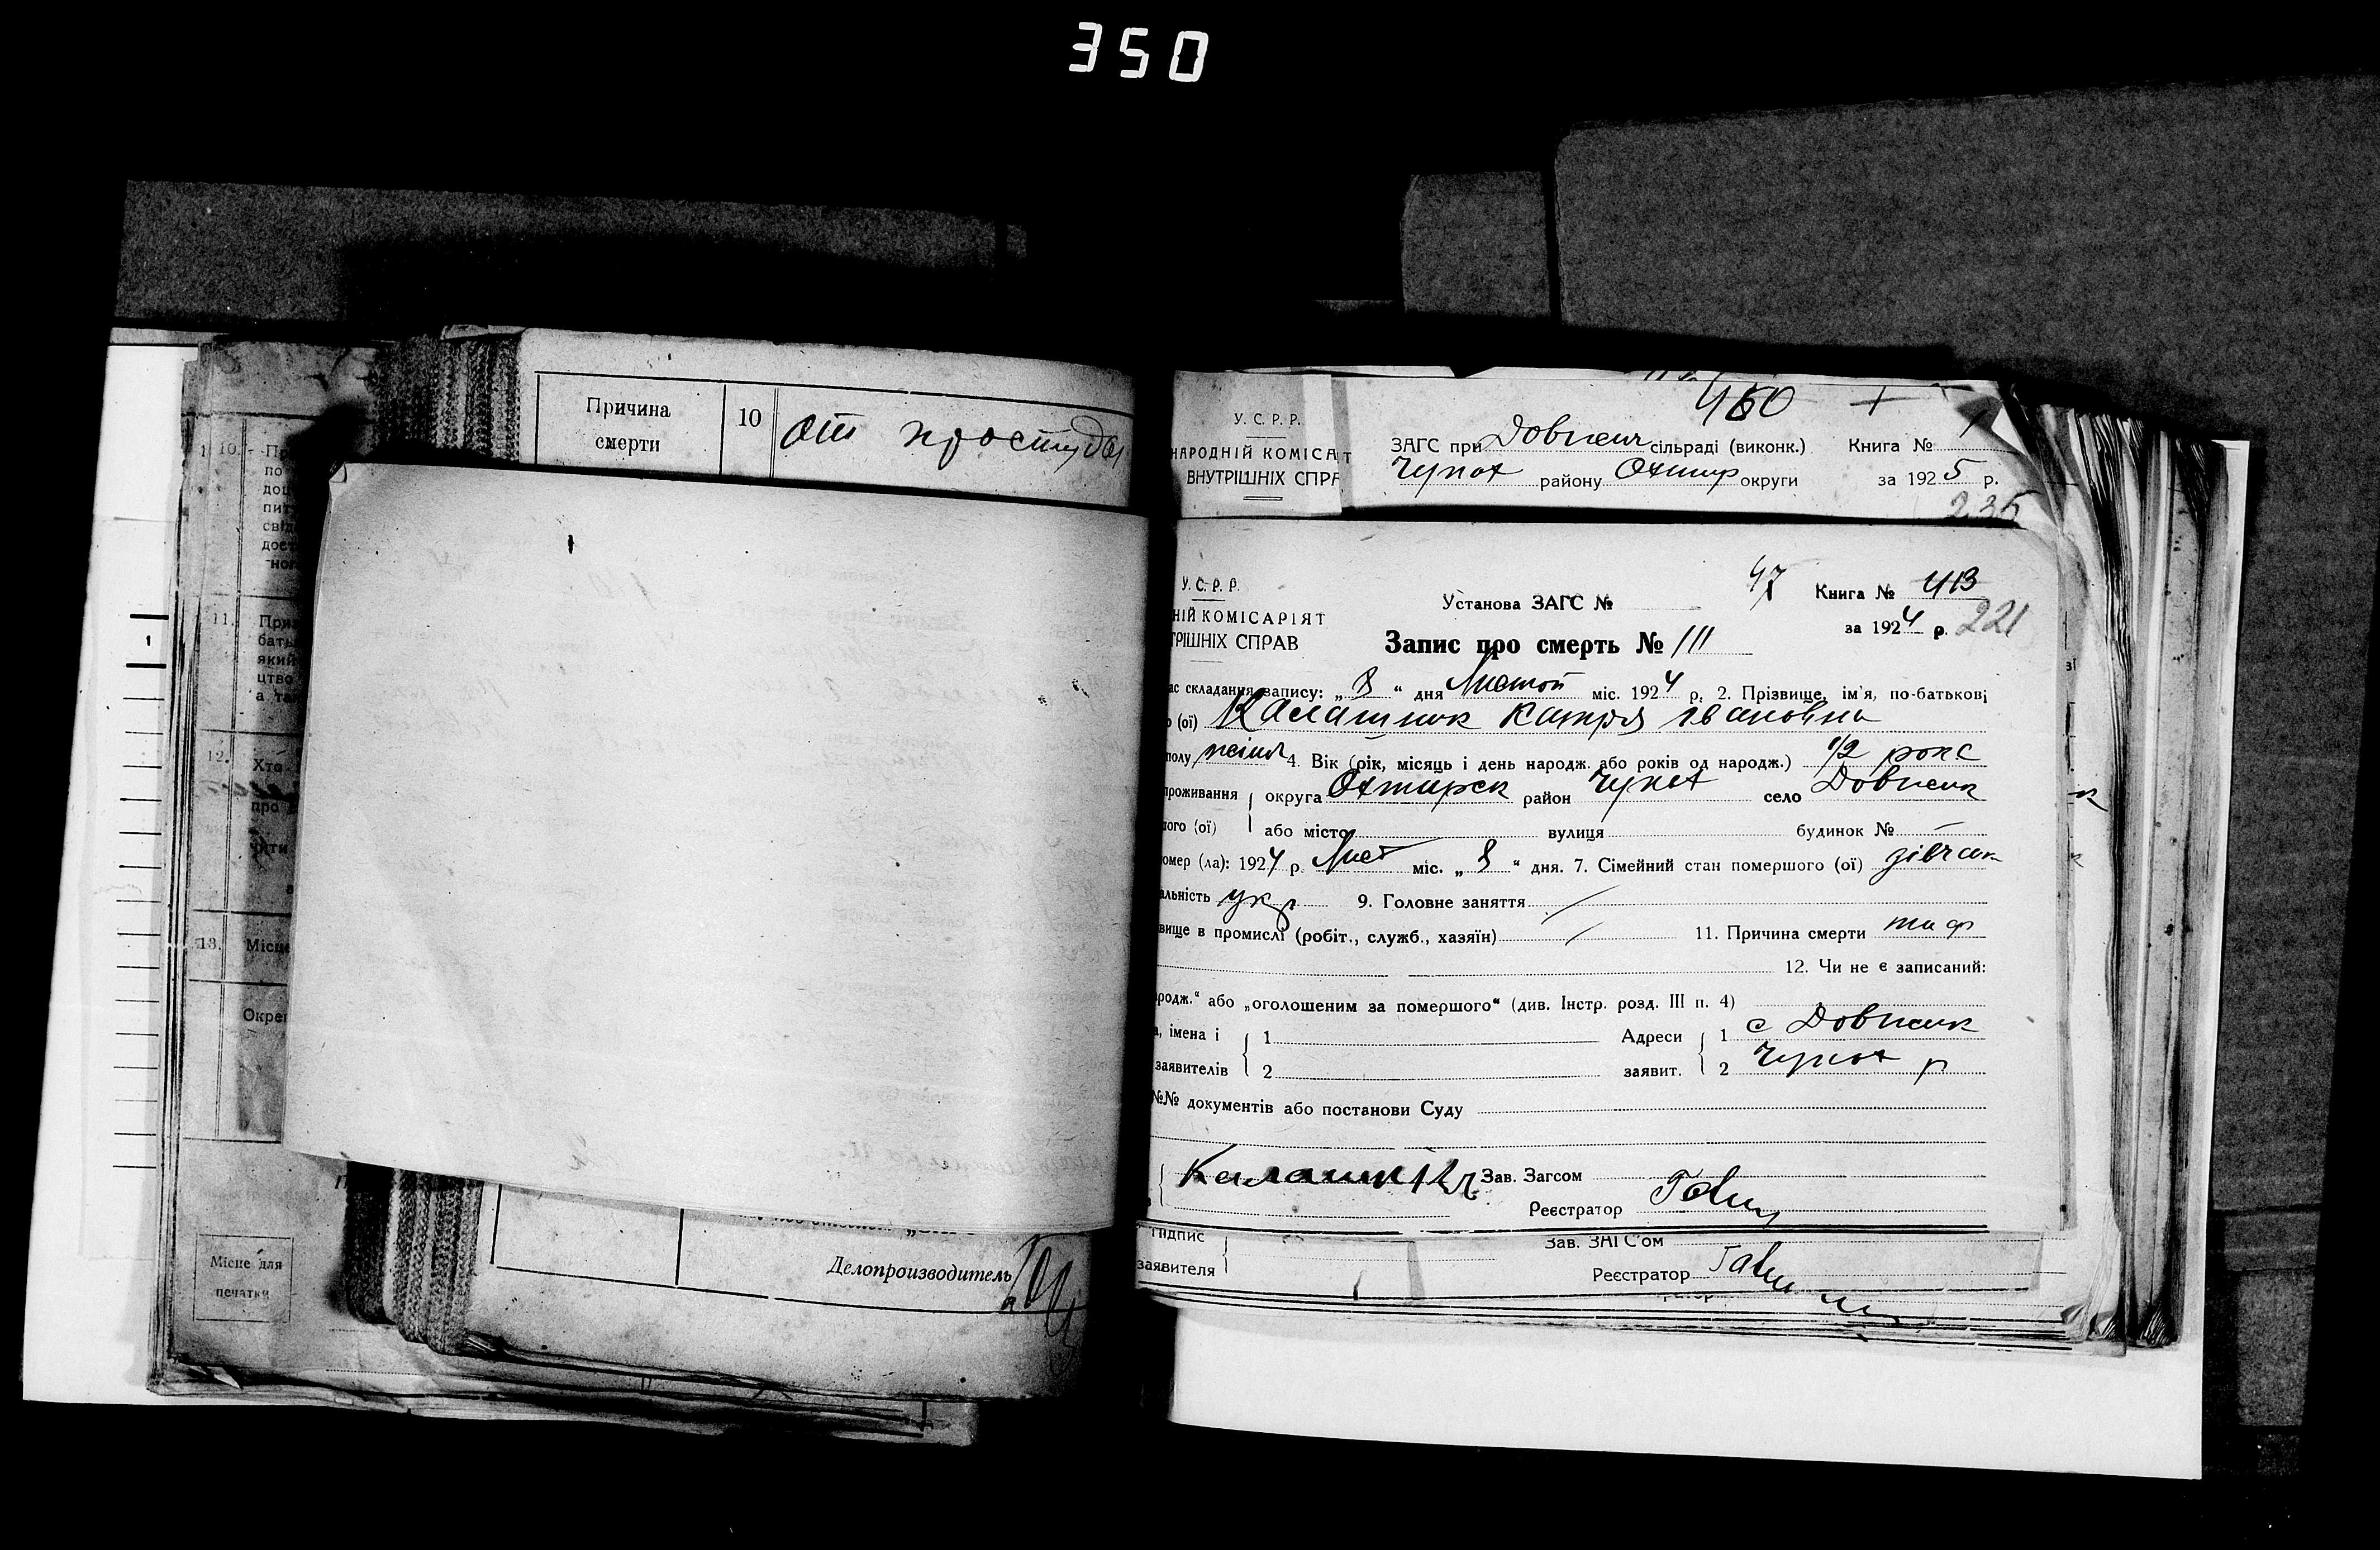 350
Причина
смерти
10
От простуды
1 10.
11.
12.
13.
Місце для
печатки
Делопроизводитель
У. С. Р. Р.
НАРОДНІЙ КОМІСАТ
ВНУТРІШНІХ СПР
460
ЗАГС при сільраді (виконк.) Книга № 1
Чупах району Охтир округи за 1925 р.
235
У. С. Р. Р.
НІЙ КОМІСАРІЯТ
ТРІШНІХ СПРАВ
Установа ЗАГС №
47
Книга № 413
за 1924 р. 221
Запис про смерть № 111
ас складання запису: „ 8 “ дня Листоп міс. 1924 р. 2. Прізвище, ім'я, по-батькові
(ої) Калашник Катря Івановна
полу жіноч 4. Вік (рік, місяць і день народж. або років од народж.) 1/2 рока
проживання округа Охтирск район Чупах село
ного (ої) або місто вулиця будинок № —
омер (ла): 1924 р. Лист міс. „ 8 “ дня. 7. Сімейний стан помершого (ої)
альність укр 9. Головне заняття
вище в промислі (робіт., служб., хазяїн) 11. Причина смерти тиф
12. Чи не є записаний:
родж.“ або „оголошеним за помершого“ (див. Інстр. розд. III п. 4)
, імена і 1 Адреси 1 с
заявителів 2 заявит. 2 Чупах р
№№ документів або постанови Суду
Калашник Зав. Загсом
Реєстратор
Підпис Зав. ЗАГС'ом
заявителя Реєстратор